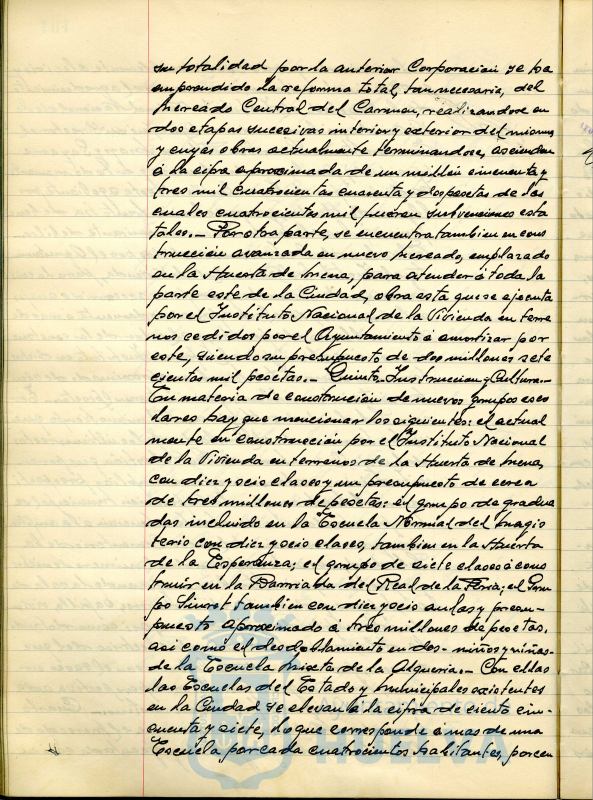 su totalidad por la anterior Corporación se ha
emprendido la reforma total, tan necesaria, del
Mercado Central del Carmen, realizandose en
dos etapas sucesivas interior y exterior del mismo
y cuyas obras actualmente terminandose, ascienden
á la cifra aproximada de un millón cincuenta y
tres mil cuatrocientas cuarenta y dos pesetas de las
cuales cuatrocientos mil fueron subvenciones esta
tales.- Por otra parte, se encuentra tambien en cons
trucción avanzada un nuevo Mercado, emplazado
en la Huerta de Mena, para atender á toda la
parte este de la Ciudad, obra esta que se ejecuta
por el Instituto Nacional de la Vivienda en terre
nos cedidos por el Ayuntamiento á amortizar por
este, siendo su presupuesto de dos millones sete
cientas mil pesetas.- Quinto-Instrucción y Cultura.-
En materia de construcción de nuevos grupos esco
lares hay que mencionar los siguientes: el actual
mente en construcción por el Instituto Nacional
de la Vivienda en terrenos de la Huerta de Mena,
con diez y ocio clases y un presupuesto de cerca
de tres millones de pesetas; el grupo de gradua
das incluido en la Escuela Normal del Magis
terio con diez y ocio clases, tambien en la Huerta
de la Esperanza; el grupo de siete clases á cons
truir en la Barriada del Real de la Feria; el Gru-
po Siurot tambien con diez y ocio aulas y presu-
puesto aproximado á tres millones de pesetas,
asi como el desdoblamiento en dos- niños y niñas-
de la Escuela Mixta de la Alqueria.- Con ellas
las Escuelas del Estado y Municipales existentes
en la Ciudad se elevan á la cifra de ciento cin-
cuenta y siete, lo que corresponde á mas de una
Escuela por cada cuatrocientos habitantes, porcen
HUELVA